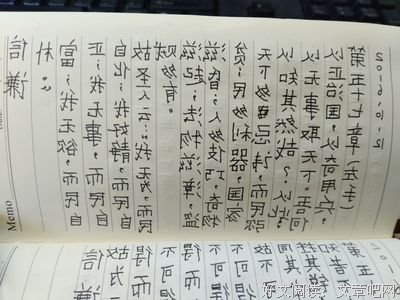 2016.10.12
第五十七章(五千)
以正治国，以奇用兵，
以无事取天下。吾何
以知其然哉？以此：
天下多忌讳，而民弥
贫；民多利器，国家
滋昏；人多伎巧，奇物
滋起；法物滋彰，盗
贼多有。
故圣人云：我无为，而民
自化；我好静，而民自
正；我无事，而民自
富；我无欲，而民自
朴。”
信谦
Memo
第五
同其
不可得
得而
不可
得而
故为
信谦
好文阅读 文章吧网